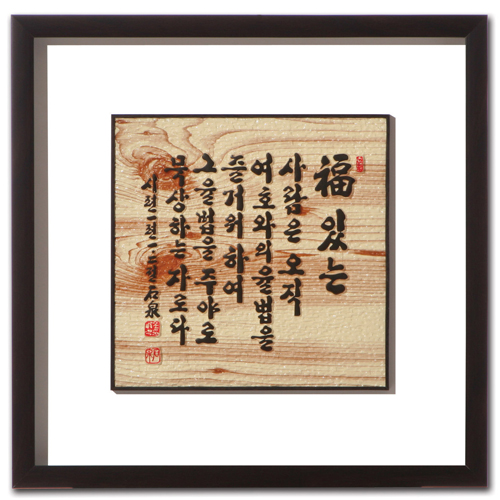 福 있는
사람은 오직
여호와의 율법을
즐거워 하여
그 율법을 주야로
묵상하는 자로다
시편 一편 一, 二절 石泉